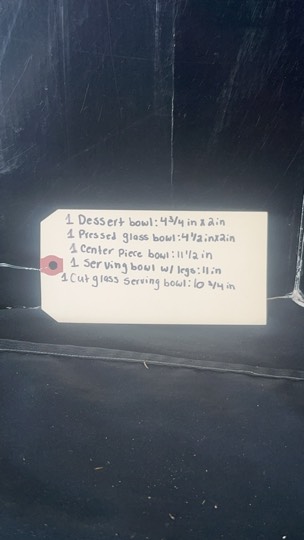 1 Dessert bowl: 4 3/4 in x 2 in
1 Pressed glass bowl: 4 1/2 in x 2in
1 Center piece bowl: 11 1/2 in
1 Serving bowl w/ legs: 11 in
1 Cut glass serving bowl: 10 3/4 in